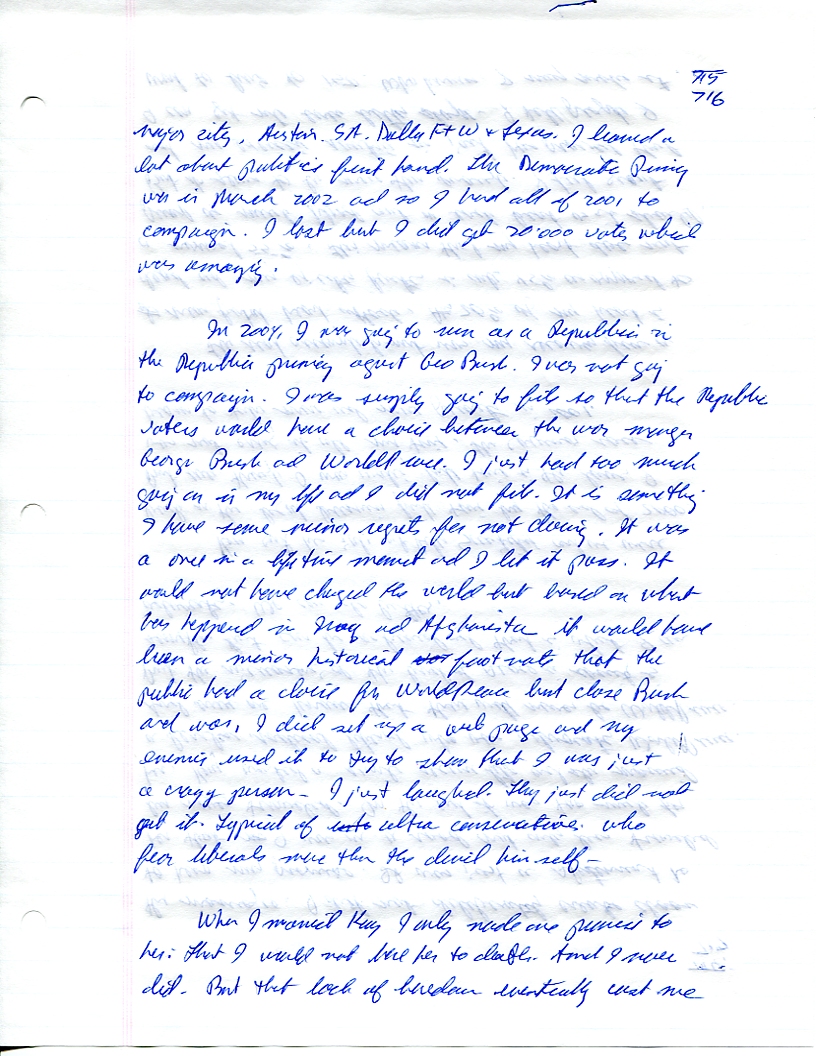 715
716
major city, Austin. SA. Dallas Ft W & Texas. I learned a
lot about politics first hand. The Democratic Primy
was in March 2002 ad so I had all of 2001 to
campaign. I lost but I did get 20,000 votes which
was amazig.
In 2004, I was goig to run as a Republica in
the Republic primay against Geo Bush. I was not goig
to campaign. I was simply goig to file so that the Republic
voters would have a choice between the war monger
George Bush ad World Peace. I just had too much
goig on in my life ad I did not file. It is somethig
I have some minor regrets for not doing. It was
a once in a life time moment ad I let it pass. It
would not have changed the world but based on what
has happend in Iraq ad Afghanista it would have
been a minor historical foot note that the
public had a choice for World Peace but chose Bush
and war, I did set up a web page and my
enemies used it to try to show that I was just
a crazy person - I just laughed. They just did not
get it. Typical of ultra conservative. who
fear liberals more than the devil him self -
When I married Kay I only made one promise to
her: that I would not bore her to death. And I never
did. But that lack of boredom eventually cost me